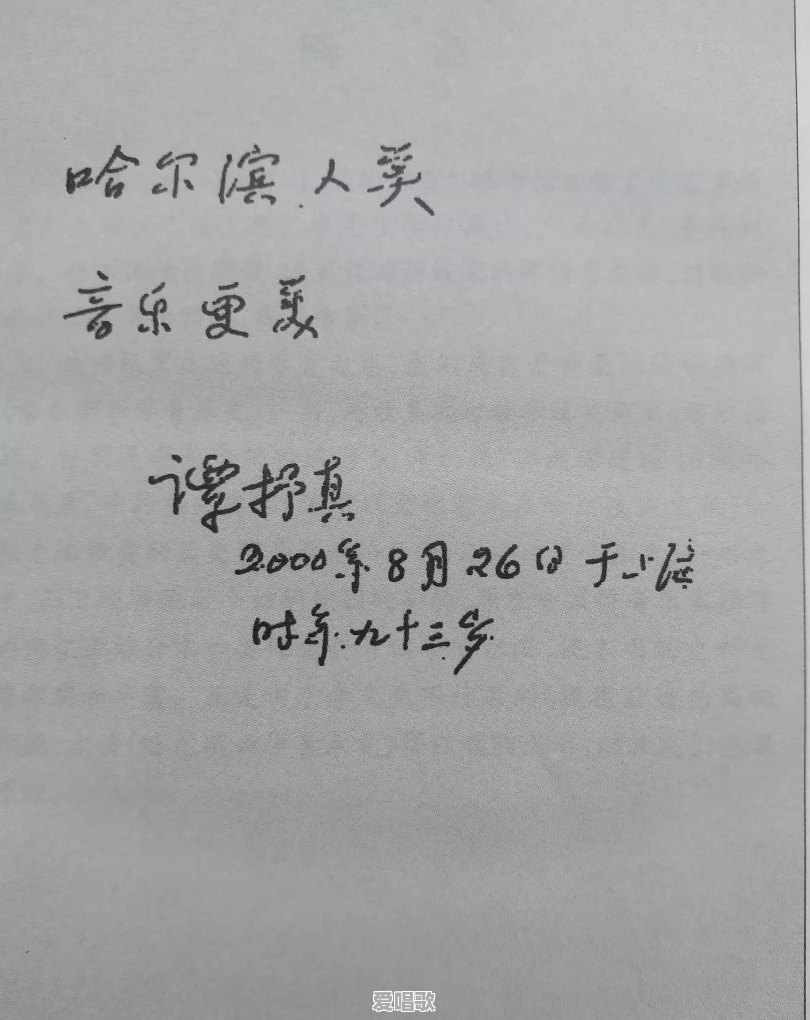 哈尔滨人美
音乐更美
谭抒真
2000年8月26日于上海
时年九十三岁
爱唱歌